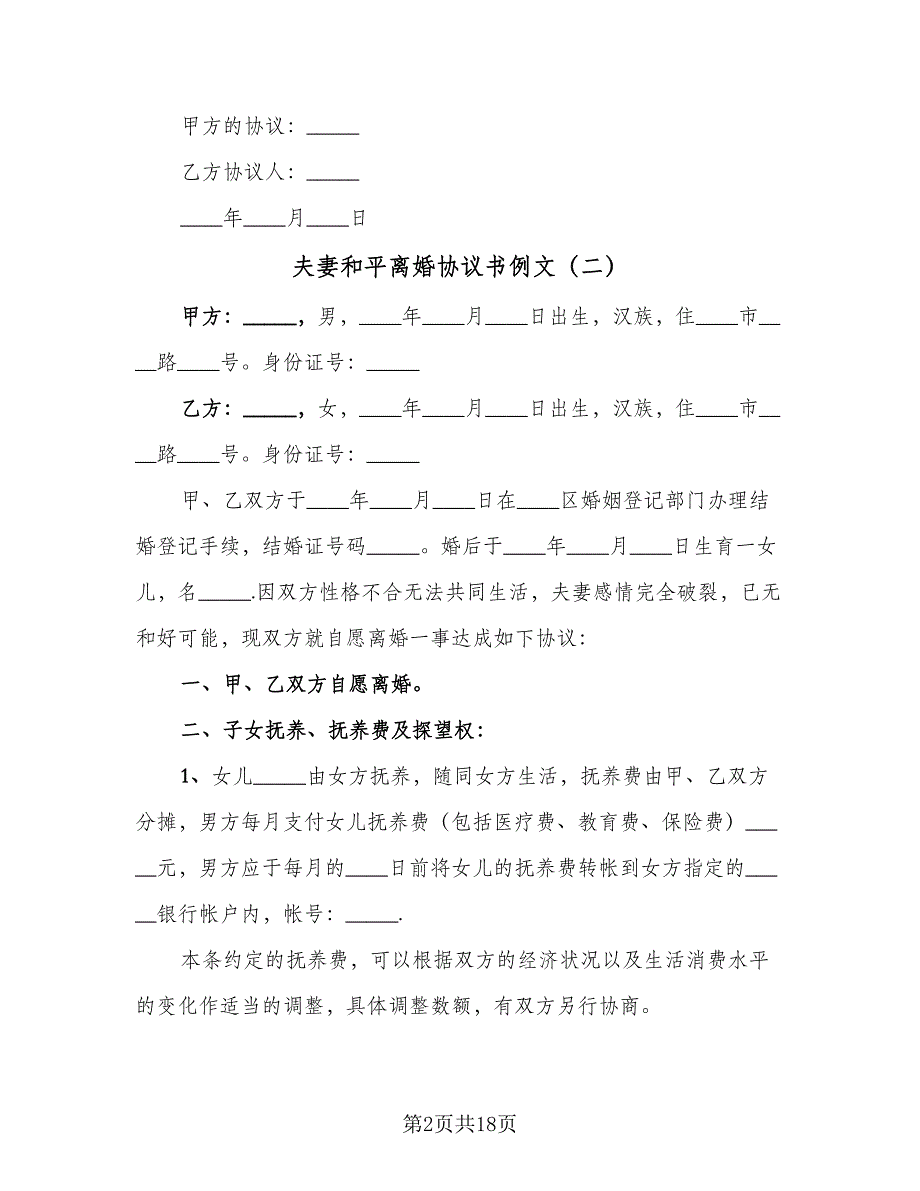 甲方的协议：_____
乙方协议人：_____
____年____月____日
夫妻和平离婚协议书例文（二）
甲方：_____，男，____年____月____日出生，汉族，住____市__
__路____号。身份证号：_____
乙方：_____，女，____年____月____日出生，汉族，住____市__
__路____号。身份证号：_____
甲、乙双方于____年____月____日在____区婚姻登记部门办理结
婚登记手续，结婚证号码_____。婚后于____年____月____日生育一女
儿，名_____.因双方性格不合无法共同生活，夫妻感情完全破裂，已无
和好可能，现双方就自愿离婚一事达成如下协议：
一、甲、乙双方自愿离婚。
二、子女抚养、抚养费及探望权：
1、女儿_____由女方抚养，随同女方生活，抚养费由甲、乙双方
分摊，男方每月支付女儿抚养费（包括医疗费、教育费、保险费）___
__元，男方应于每月的____日前将女儿的抚养费转帐到女方指定的___
__银行帐户内，帐号：_____.
本条约定的抚养费，可以根据双方的经济状况以及生活消费水平
的变化作适当的调整，具体调整数额，有双方另行协商。
第2页共18页